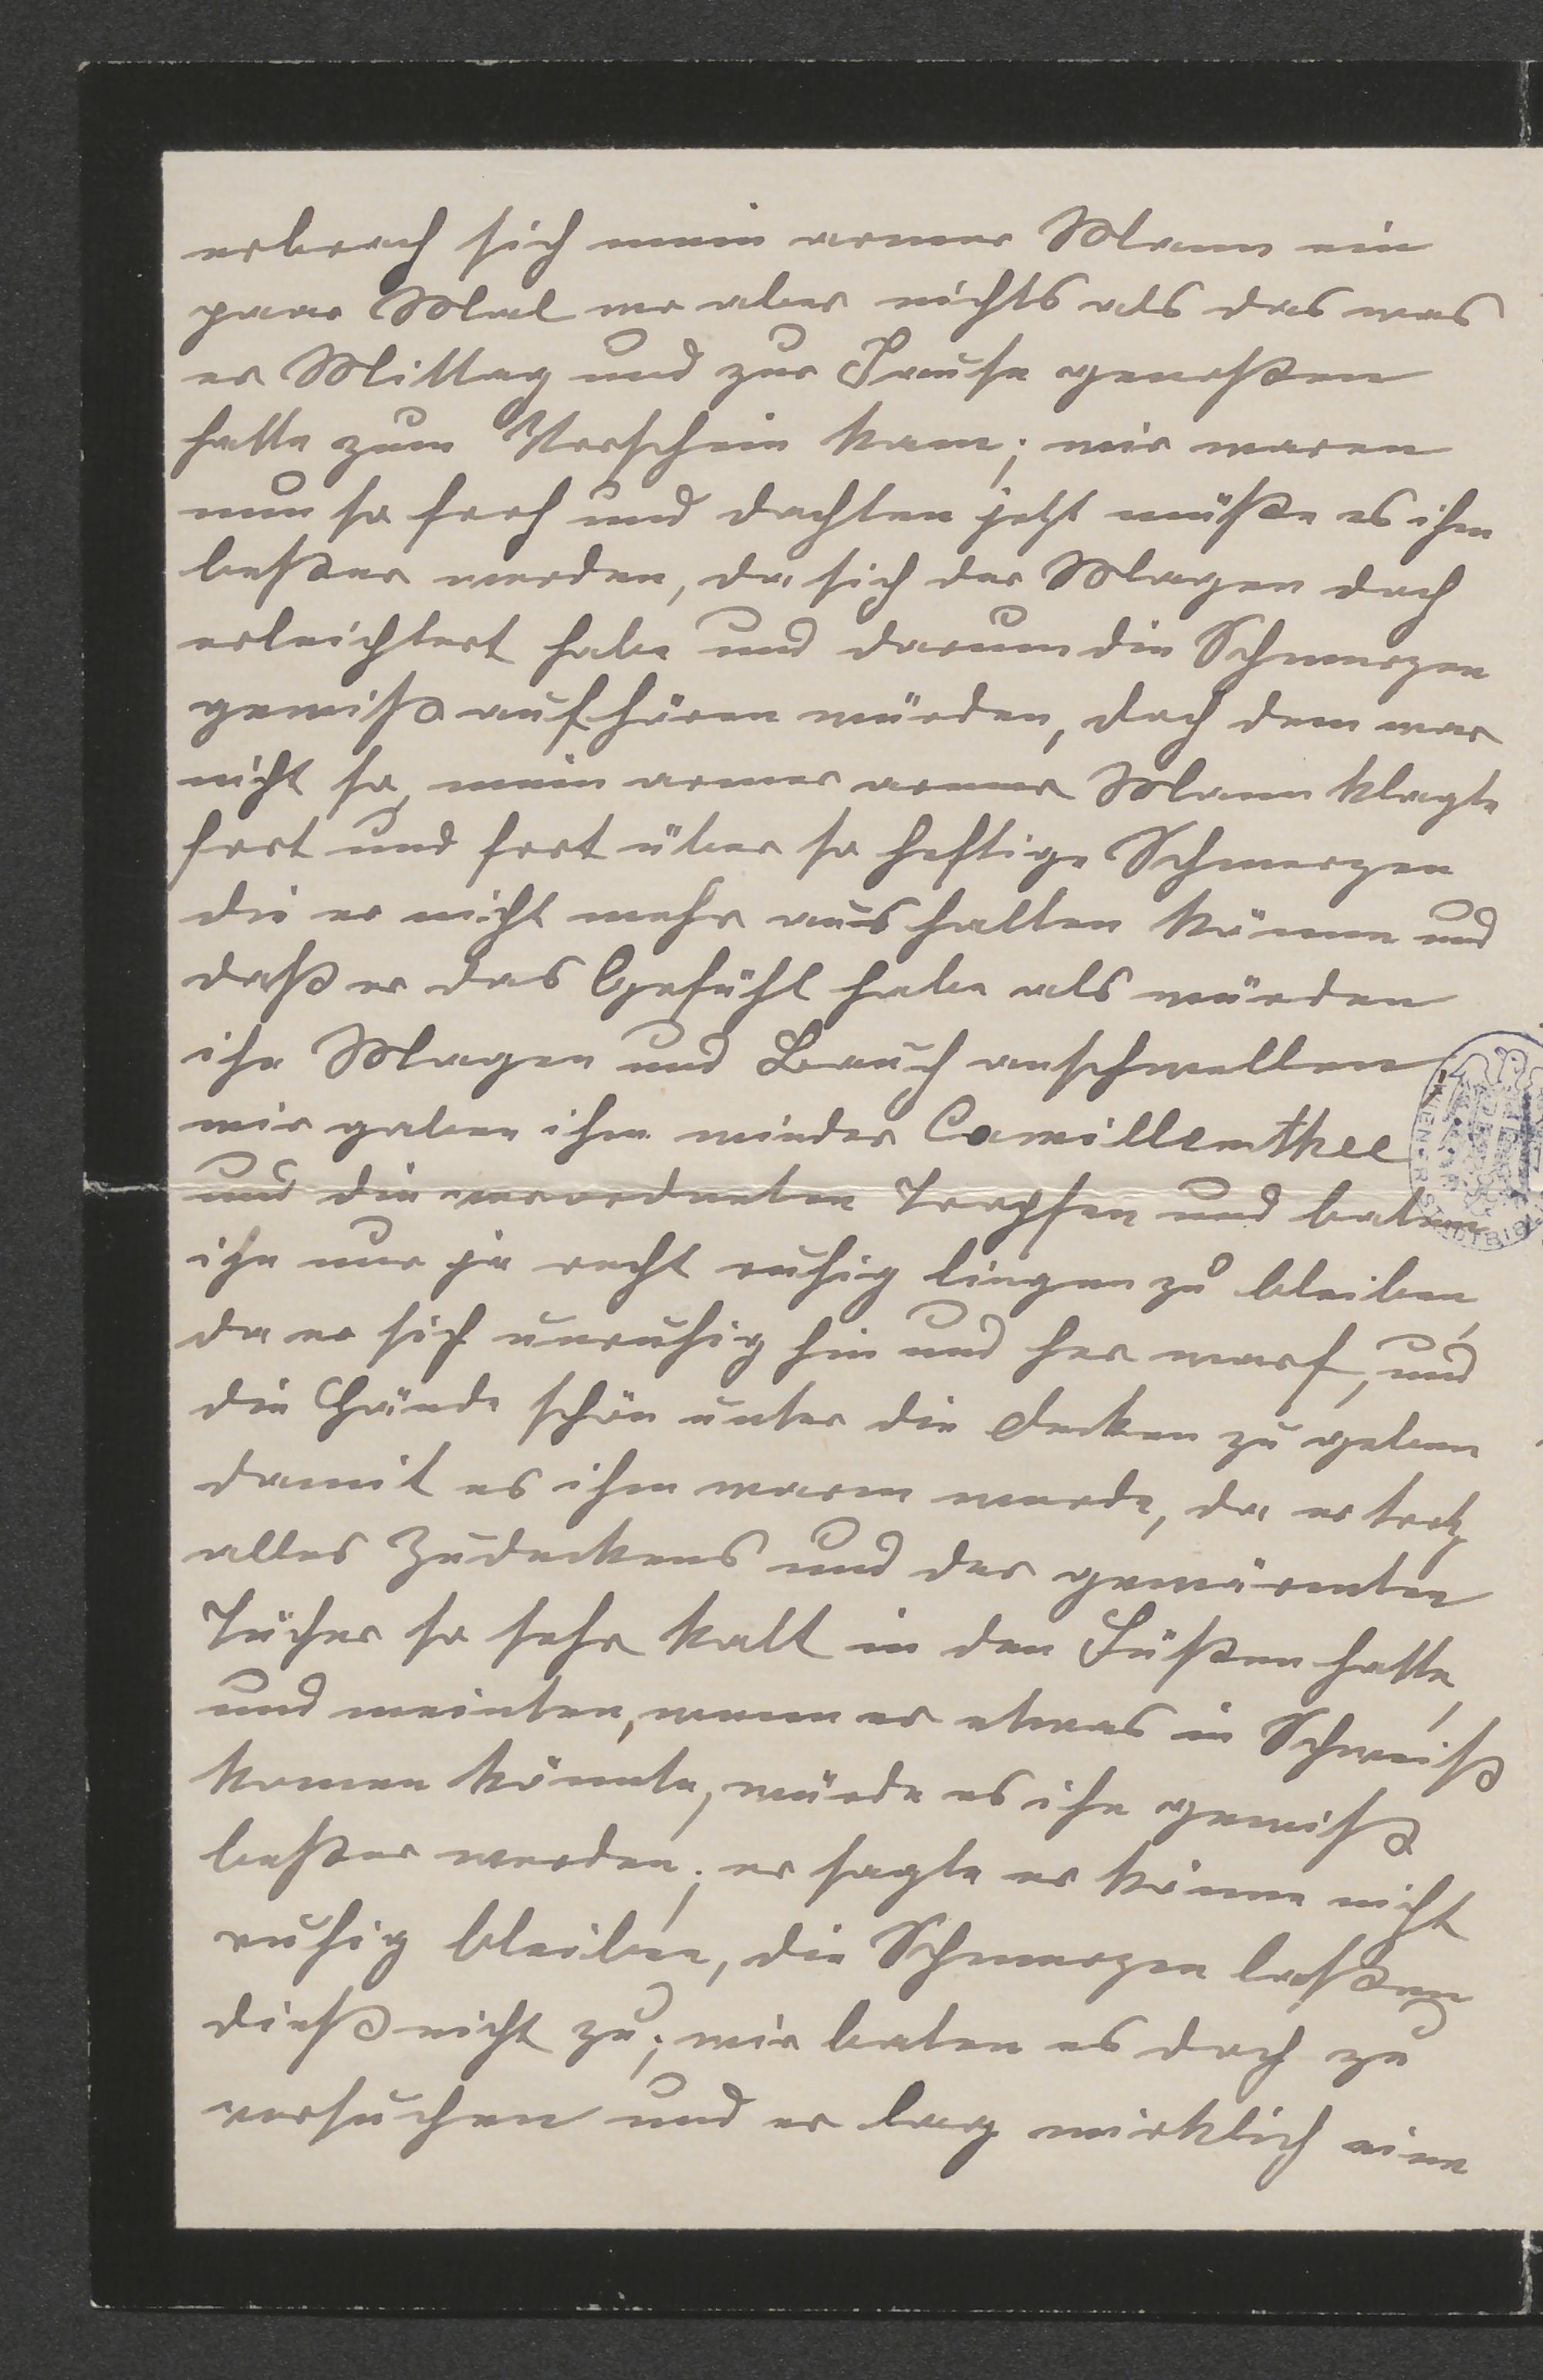 erbrach sich mein armer Mann ein
paar Mal wo aber nichts als das was
er Mittag und zur Jause genoßen
hatte zum Vorschein kam; wir waren
nun so froh und dachten jetzt müße es ihm
beßer werden, da sich der Magen doch
erleichtert habe und darum die Schmerzen
gewiß aufhören würden, doch dem war
nicht so, mein armer armer Mann klagte
fort und fort über so heftige Schmerzen
die er nicht mehr aushalten könne und
daß er das Gefühl habe als würden
ihm Magen und Bauch anschwellen
wir gaben ihm wieder Camillenthee
und die verordneten Tropfen und baten
ihn nur ja recht ruhig liegen zu bleiben,
da er sich unruhig hin und her warf, und
die Hände schön unter die Decken zu geben
damit es ihm warm werde, da er trotz
alles Zudeckens und der gewärmten
Tücher so sehr kalt in den Füßen hatte,
und meinten, wenn er etwas in Schweiß
komen könnte, würde es ihm gewiß
beßer werden; er sagte er könne nicht
ruhig bleiben, die Schmerzen laßen
dieß nicht zu; wir baten es doch zu
versuchen und er lag wirklich eine